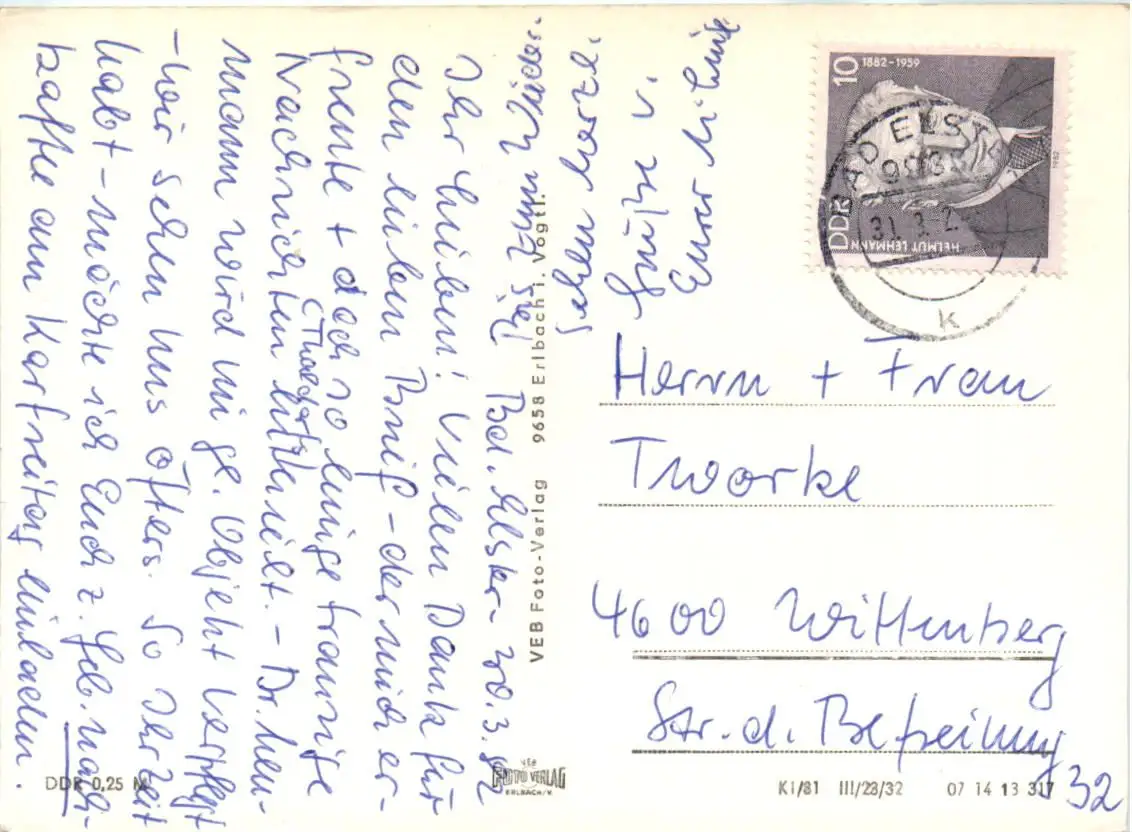 Bad. Elster - 30.3.82
Ihr Lieben! Vielen Dank für
den lieben Brief - der mich er-
freute + doch so einige traurige
(Theodor)
Nachrichten enthielt. - Dr.
mann wird nie ge. Objekt verpflegt
- wir sehen uns öfters. So Ihr Zeit
habt - möchte ich Euch z. Geb. nach-
kaffee am Karfreitag einladen.
Bis zum Wieder-
sehen herzl.
Grüße v.
Eurer
VEB Foto-Verlag 9658 Erlbach i. Vogtl.
10
1882-1959
DDR
HELMUT LEHMANN
1982
BAD ELSTER
9933
31. 3. 82
k
Herrn + Frau
Tworke
4600 Wittenberg
Str. d. Befreiung
32
DDR 0,25 M
VEB
FOTO VERLAG
ERLBACH/V.
K1/81 III/28/32 07 14 13 317